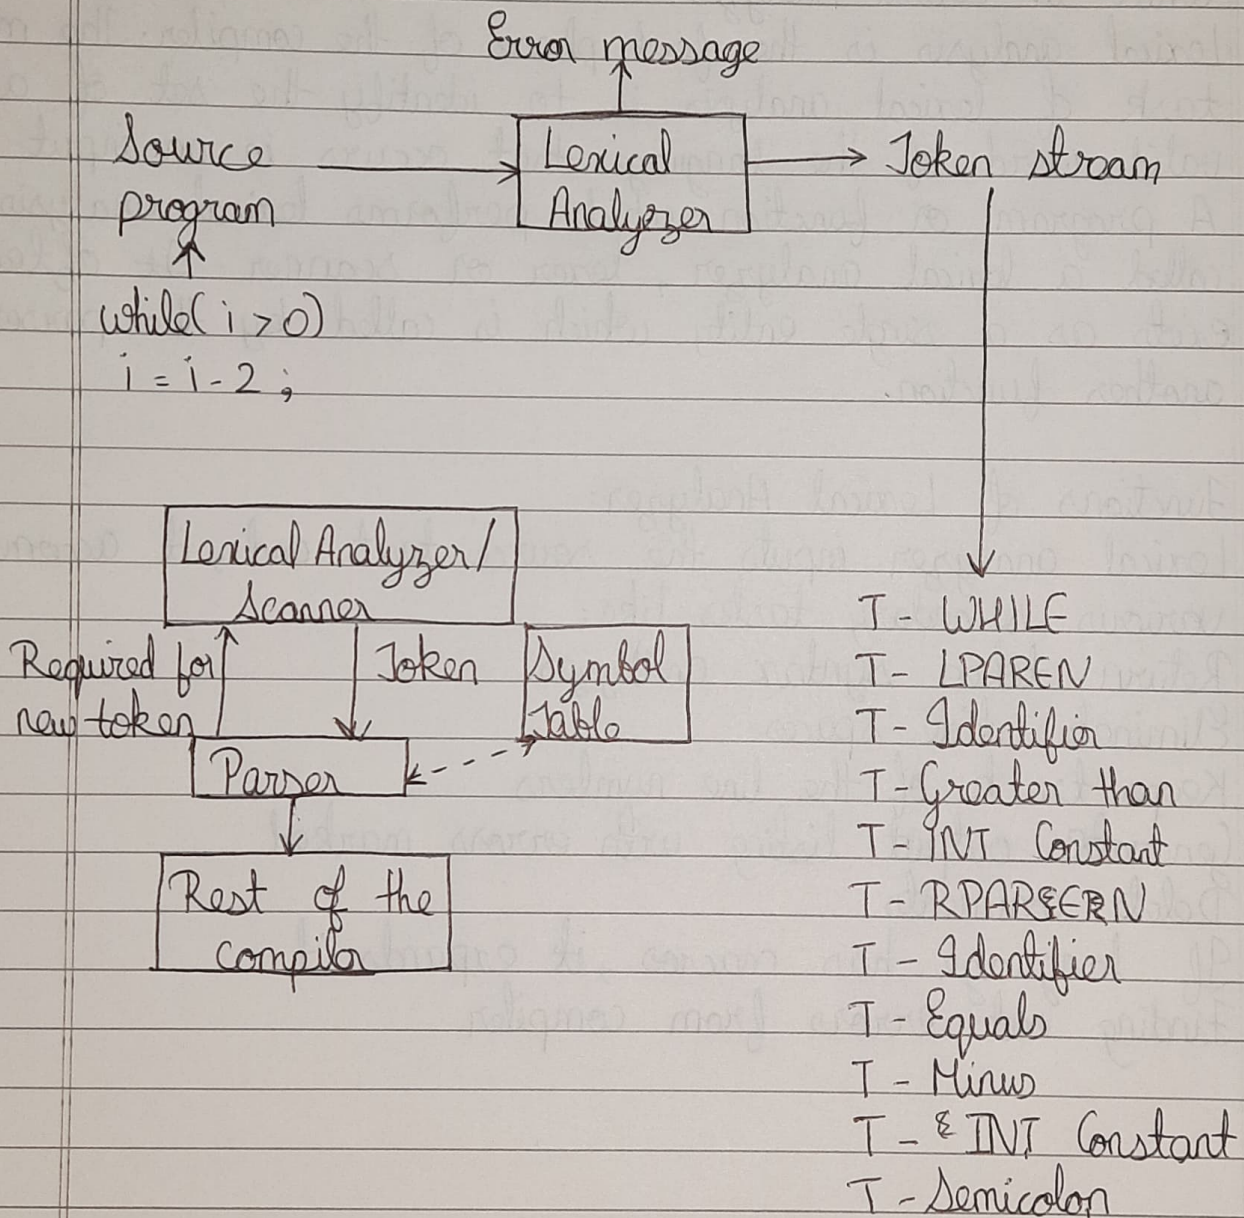 Error message
Source
program
Lexical
Analyezer
Token stream
while( i > 0)
i = i - 2 ;
Lexical Analyzer/
Scanner
Required for
new token
Token
Symbol
Table
Parser
Rest of the
compiler
T - WHILE
T - LPAREN
T - Identifier
T - Greater than
T - INT Constant
T - RPAREERN
T - Identifier
T - Equals
T - Minus
T - INT Constant
T - Semicolon